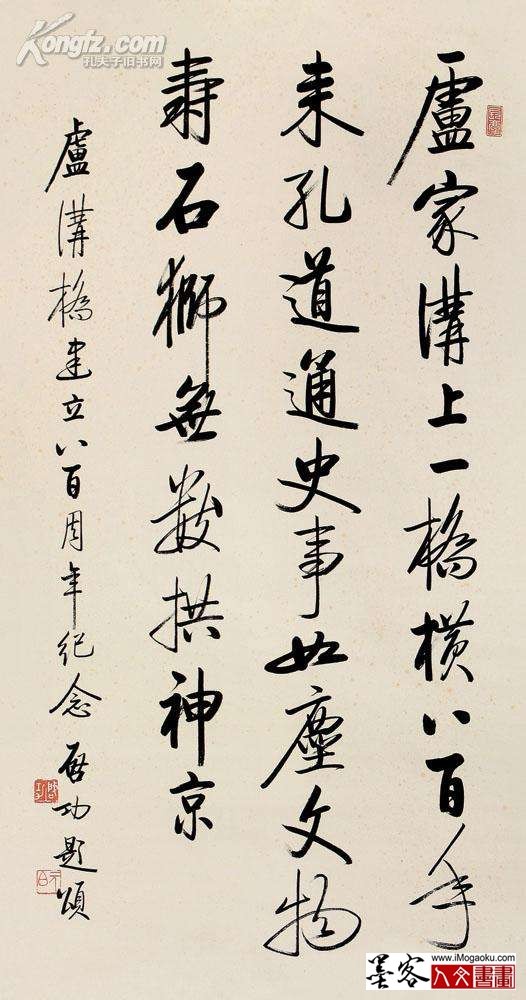 盧家溝上一橋橫八百年
来孔道通史事如塵文物
壽石獅無数拱神京
盧溝橋建立八百周年纪念 启功題頌
Kongfz.com
孔夫子旧书网
www.iMogaoku.com
墨客
人文書畫